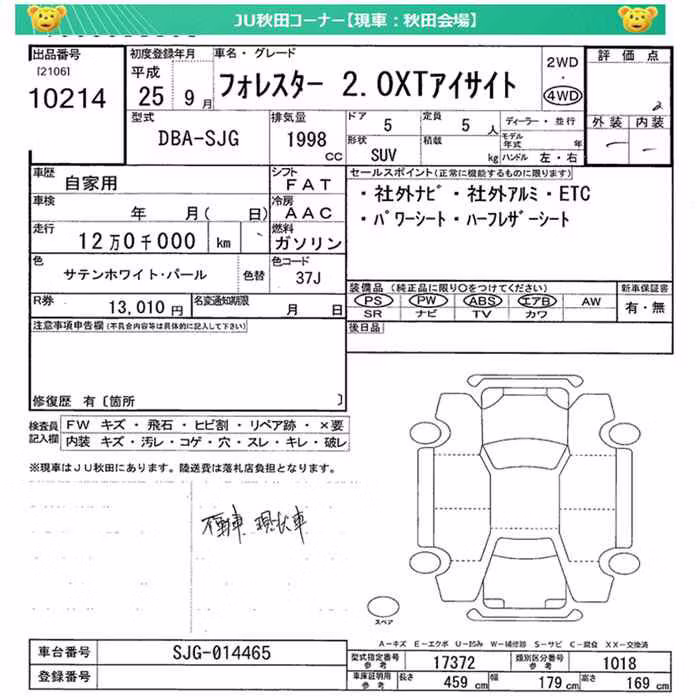 JU秋田コーナー【現車：秋田会場】
出品番号 初度登録年月 車名・グレード 2WD 評価点
[2106] 平成 ・
10214 25 9月 フォレスター 2.0XTアイサイト 4WD 2
型式 排気量 ドア 定員 ディーラー・並行 外装 内装
DBA-SJG 1998 CC 5 5人 モデル年式 年
形状 積載
SUV kg ハンドル 左・右
車歴 自家用 シフト FAT セールスポイント(正常に機能するものに限ります)
車検 年 月( 日) 冷房 AAC ・社外ナビ・社外アルミ・ETC
走行 12万0千000 km 燃料 ガソリン ・パワーシート・ハーフレザーシート
色 サテンホワイト・パール 色替 色コード 37J
装備品 (純正品に限り○をつけてください) 新車保証書
R券 13,010円 名変通知期限 月 日 PS PW ABS エアB AW 有・無
SR ナビ TV カワ
注意事項申告欄(不具合内容等は具体的に記入して下さい) 後日品
修復歴 有〔箇所 〕
検査員記入欄 FW キズ・飛石・ヒビ割・リペア跡・×要
内装 キズ・汚レ・コゲ・穴・スレ・キレ・破レ
※現車はJU秋田にあります。陸送費は落札店負担となります。
不動車 現状車
スペア
A－キズ E－エクボ U－凹み W－補修跡 S－サビ C－腐食 XX－交換済
車台番号 SJG-014465 型式指定番号 参考 17372 類別区分番号 参考 1018
登録番号 車庫証明用 参考 長さ 459 cm 幅 179 cm 高さ 169 cm